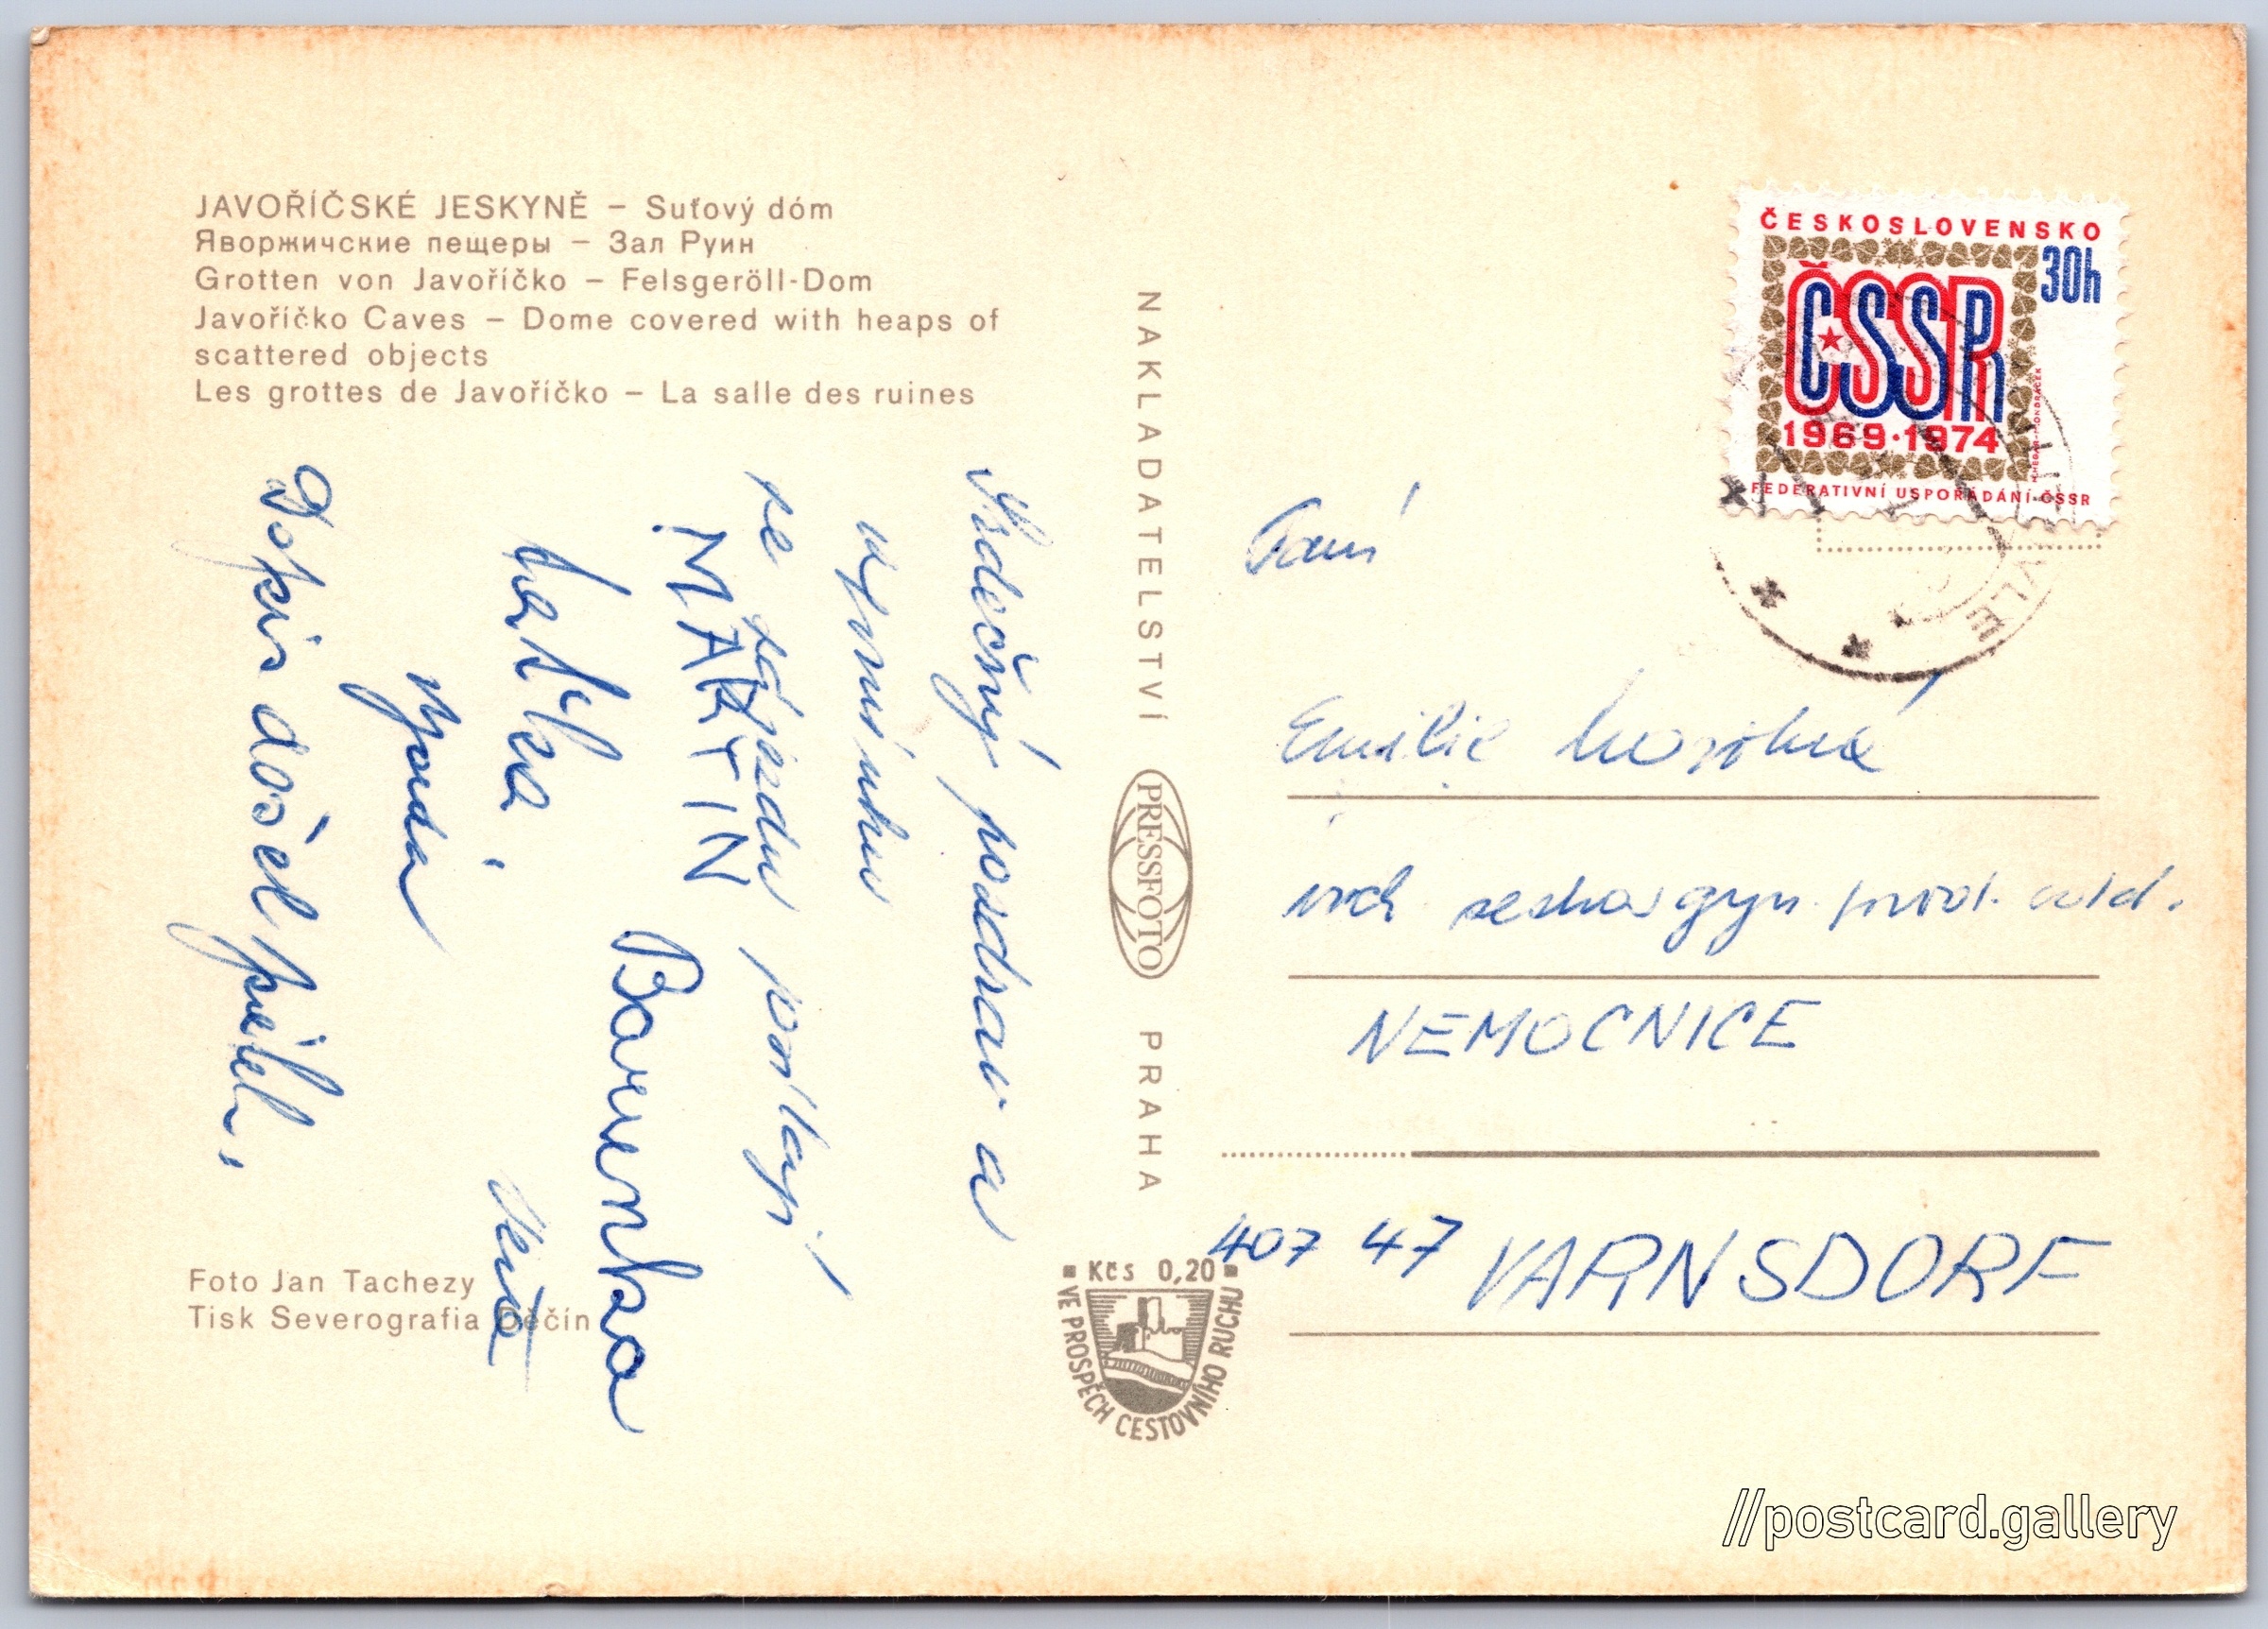 JAVOŘÍČSKÉ JESKYNĚ – Suťový dóm
Яворжичские пещеры – Зал Руин
Grotten von Javoříčko – Felsgeröll-Dom
Javoříčko Caves – Dome covered with heaps of
scattered objects
Les grottes de Javoříčko – La salle des ruines
Srdečný pozdrav a
vzpomínku
ze zájezdu posílají
MARTIN
Barunka
Dopis došel
Foto Jan Tachezy
Tisk Severografia Děčín
NAKLADATELSTVÍ PRESSFOTO PRAHA
Kčs 0,20
VE PROSPĚCH CESTOVNÍHO RUCHU
ČESKOSLOVENSKO
30h
ČSSR
1969·1974
FEDERATIVNÍ USPOŘÁDÁNÍ ČSSR
Paní
Emilie
gyn.
NEMOCNICE
407 47 VARNSDORF
//postcard.gallery